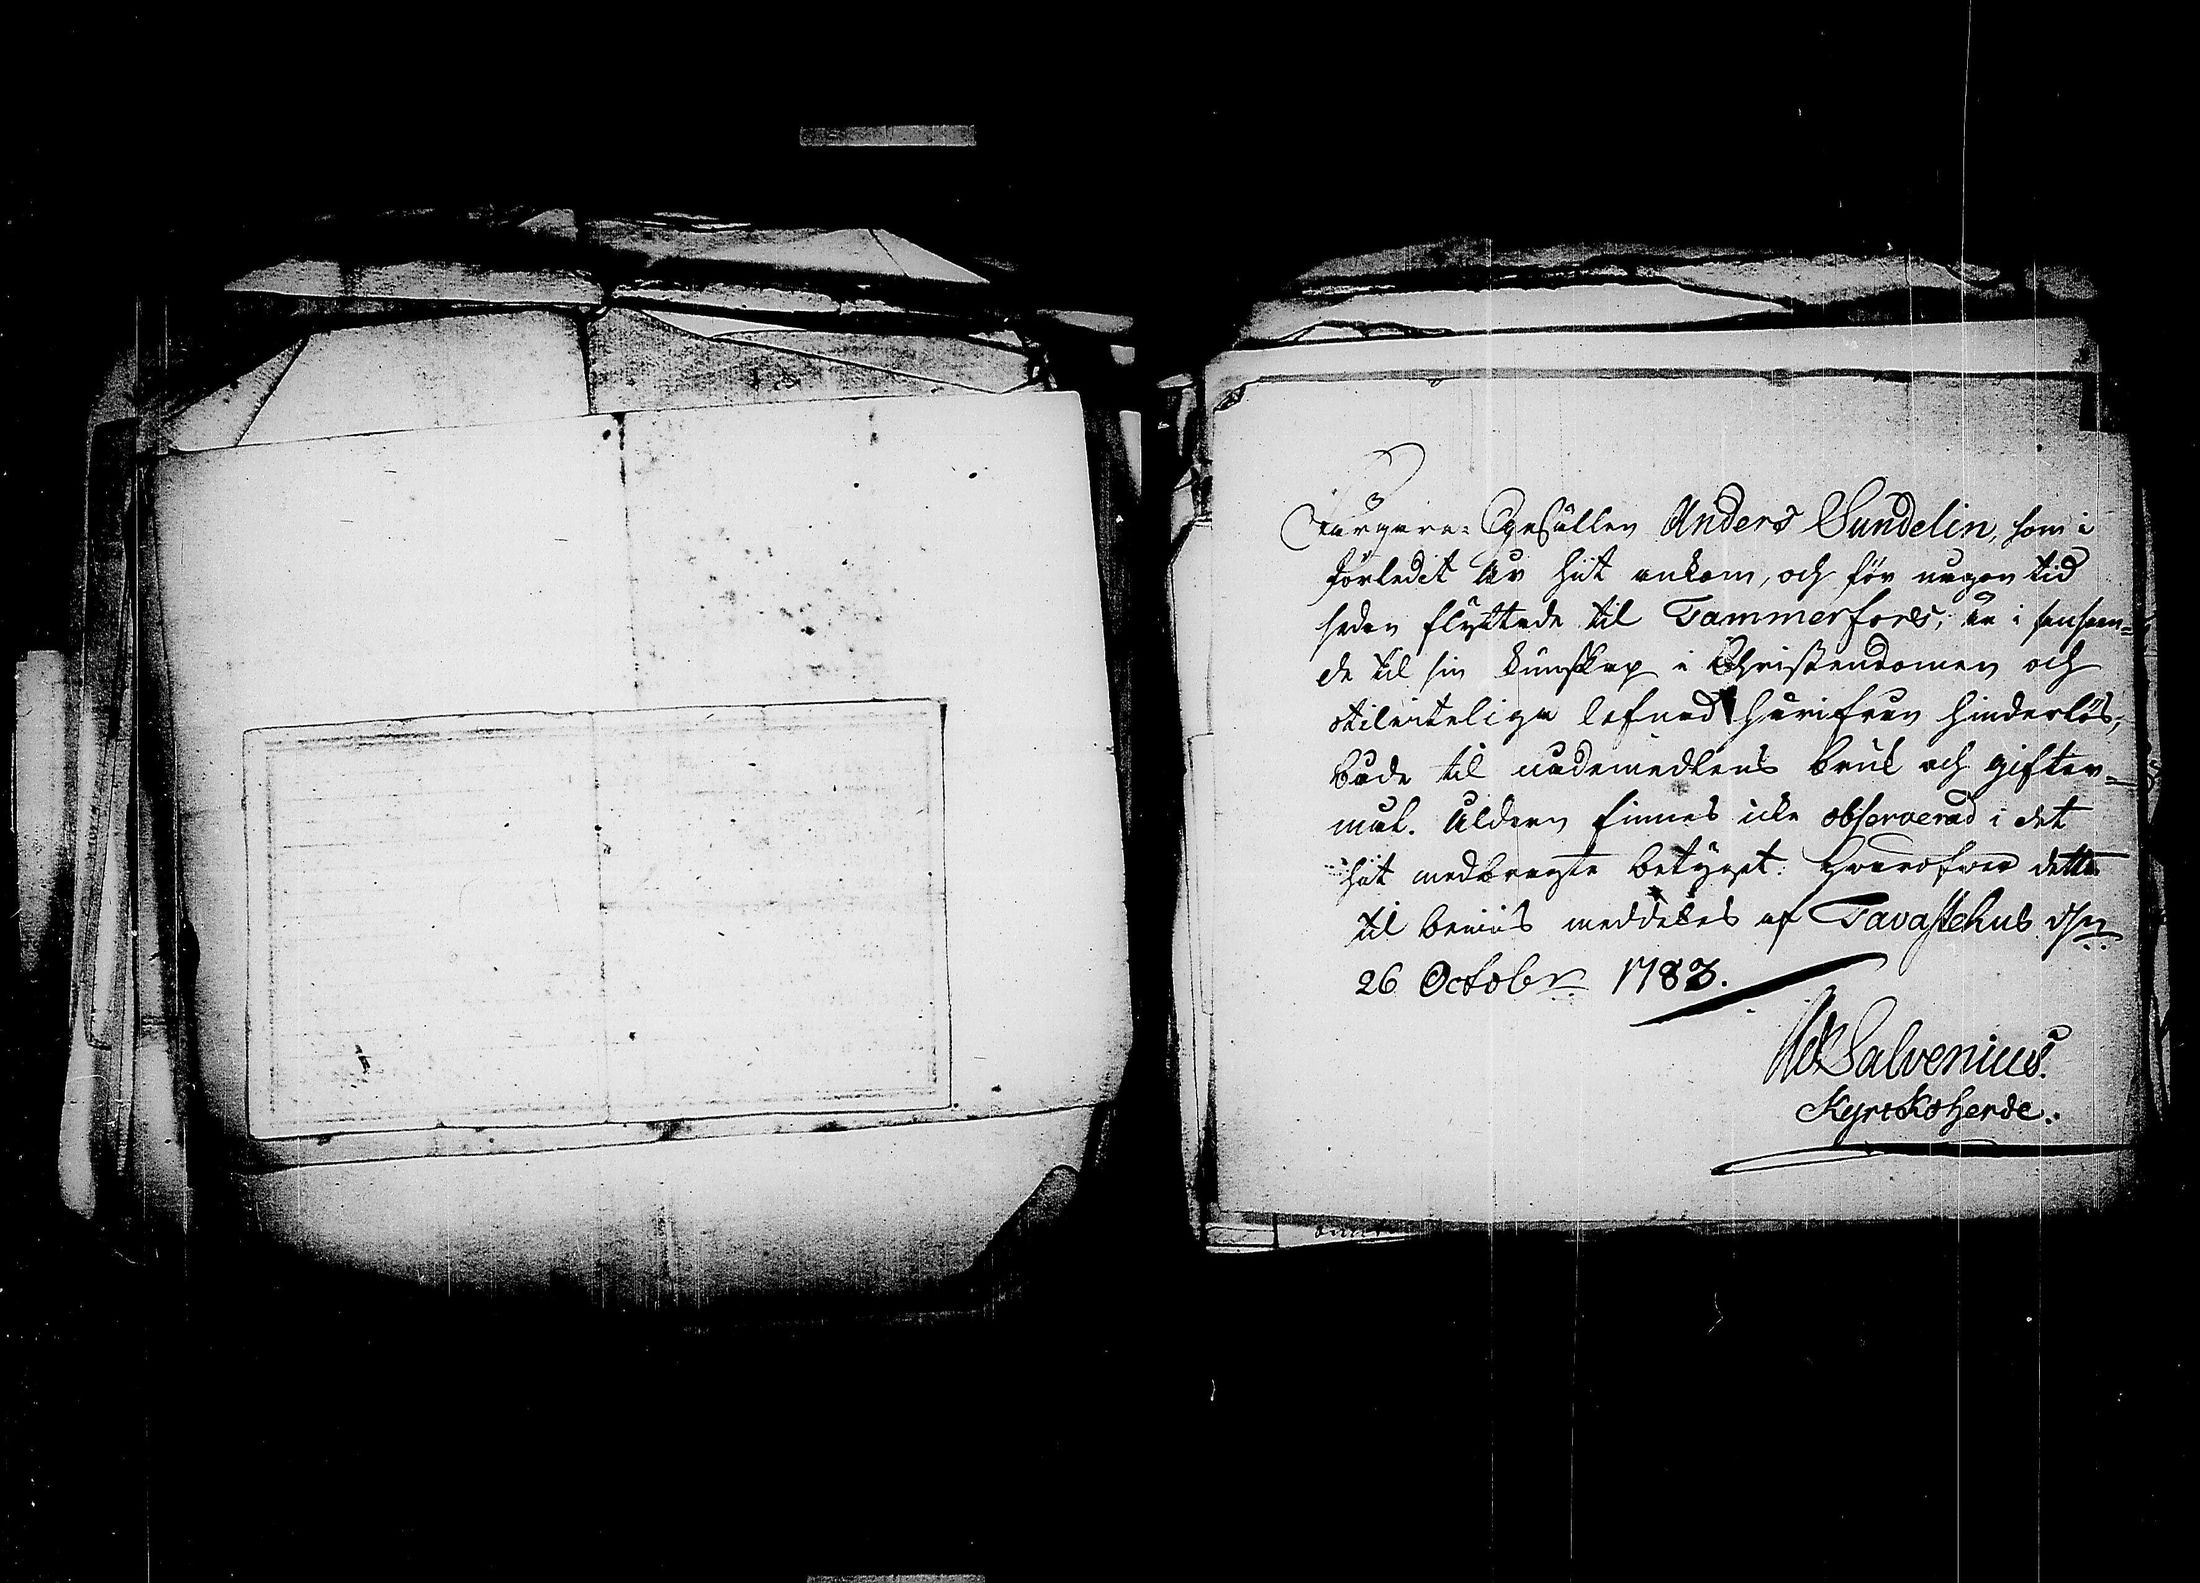 Färgare-Gesällen Anders Sundelin, som i
förledit år hit ankom, och för någon tid
sedan flyttade til Tammerfors, är i anseen-
de til sin kunskap i Christendomen och
otilartelige lefnad härifrån hinderlös,
både til nådemedlens bruk och gifter-
mål. Åldern finnes icke observerad i det
hit medbragte betyget. Hvarföre detta
til beviis meddelas af Tavastehus dẽn
26 Octobr. 1783.
Salvenius.
Kyrkoherde.